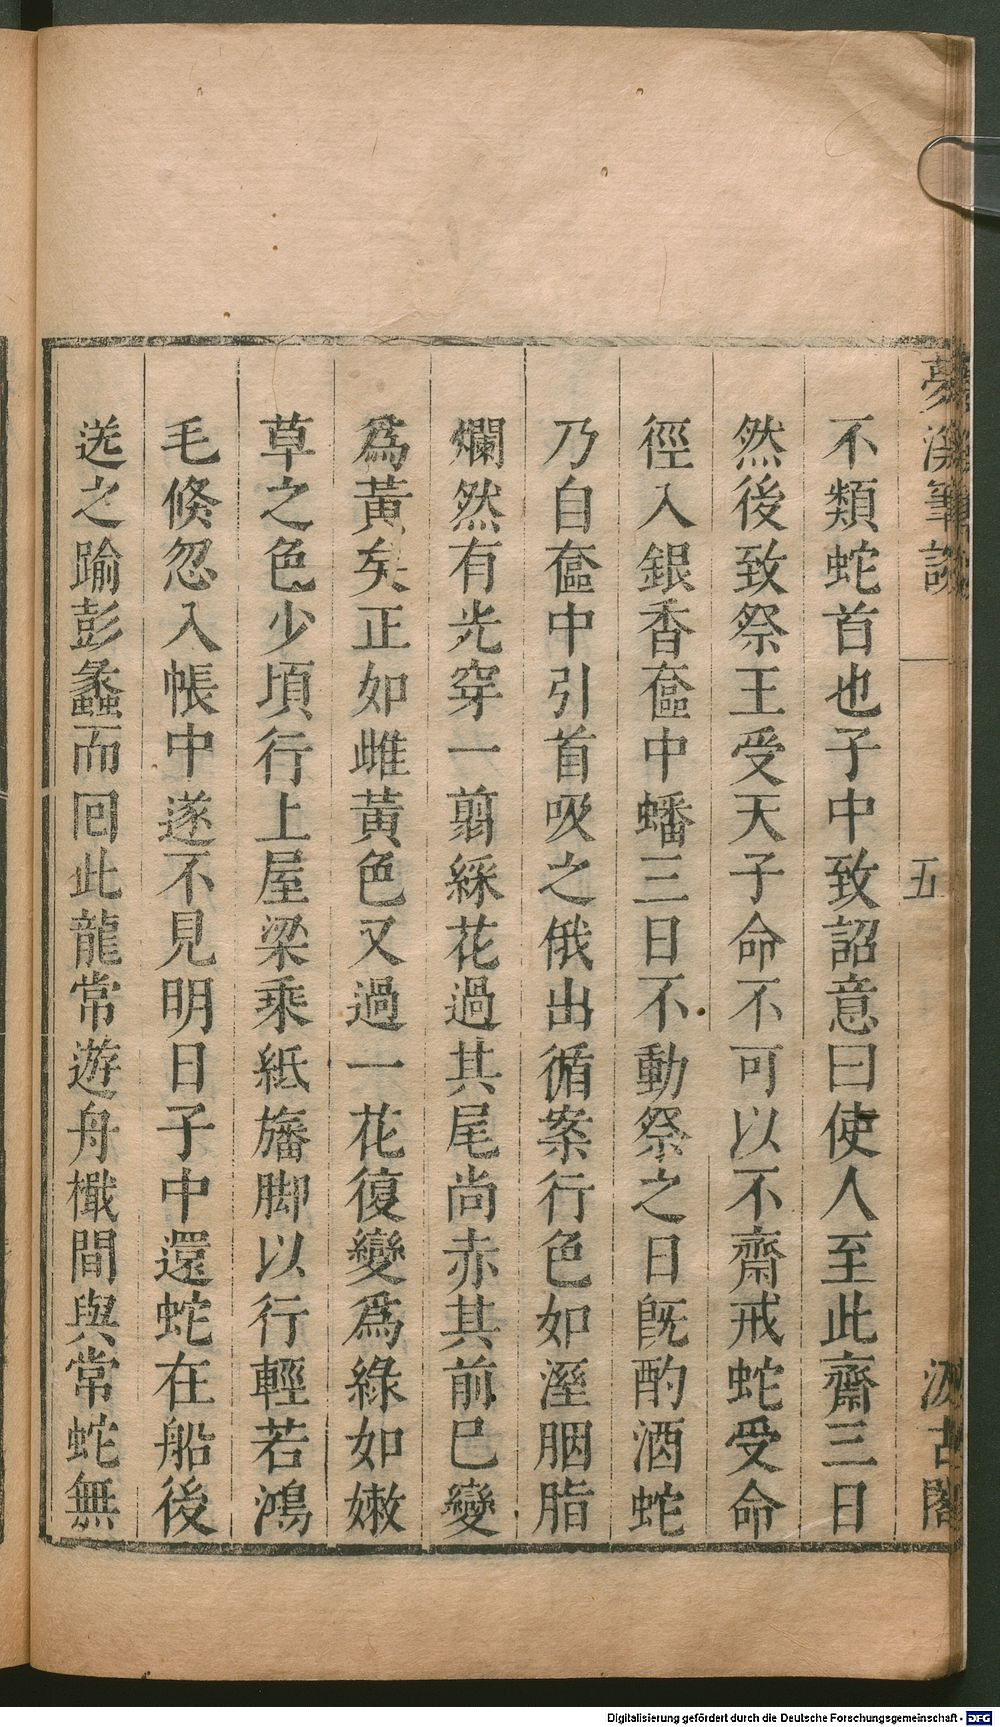 夢溪筆談
五
汲古閣
不類蛇首也子中致詔意曰使人至此齋三日
然後致祭王受天子命不可以不齋戒蛇受命
徑入銀香奩中蟠三日不動祭之日旣酌酒蛇
乃自奩中引首吸之俄出循案行色如溼胭脂
爛然有光穿一剪綵花過其尾尚赤其前巳變
爲黃矣正如雌黃色又過一花復變爲綠如嫩
草之色少頃行上屋梁乘紙旛脚以行輕若鴻
毛倐忽入帳中遂不見明日子中還蛇在船後
送之踰彭蠡而回此龍常遊舟檝間與常蛇無
Digitalisierung gefördert durch die Deutsche Forschungsgemeinschaft - DFG